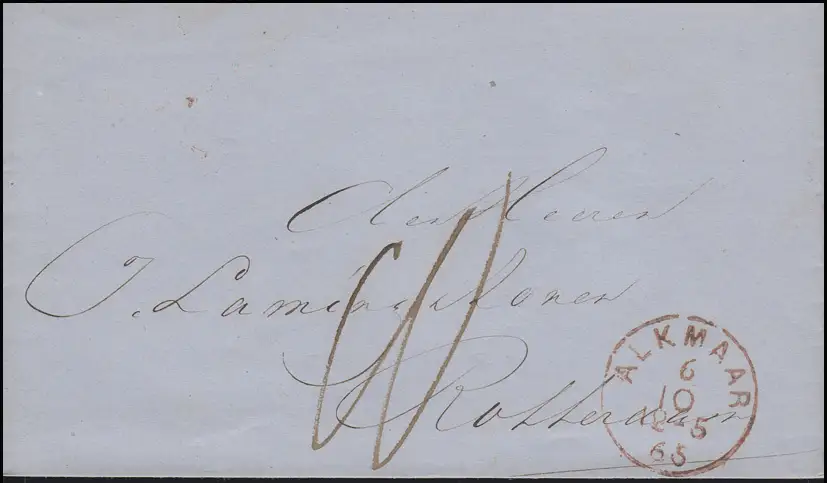 Den Heeren
J. Laming & Zonen
Rotterdam
10
ALKMAAR
6
10
5
65